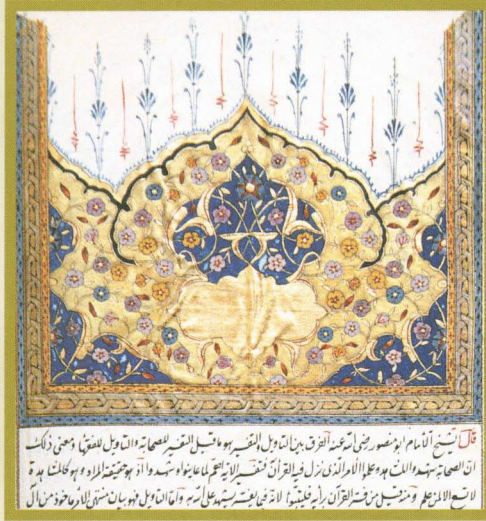 قال الشيخ الامام ابو منصور رضى الله عنه الفرق بين التاويل والتفسير هو ما قيل التفسير للصحابة والتاويل للفقهاء ومعنى ذلك
ان الصحابة شهدوا المشاهد وعلموا الامر الذى نزل فيه القرآن فتفسير الاية اهم لما عاينوا وشهدوا اذ هو حقيقة المراد وهو كالمشاهدة
لا تسع الا لمن علم ومنه قيل من فسر القرآن برأيه فليتبوأ لانه فيما يفسر يشهد على الله به واما التاويل فهو بيان منتهى الامر مأخوذ من آل